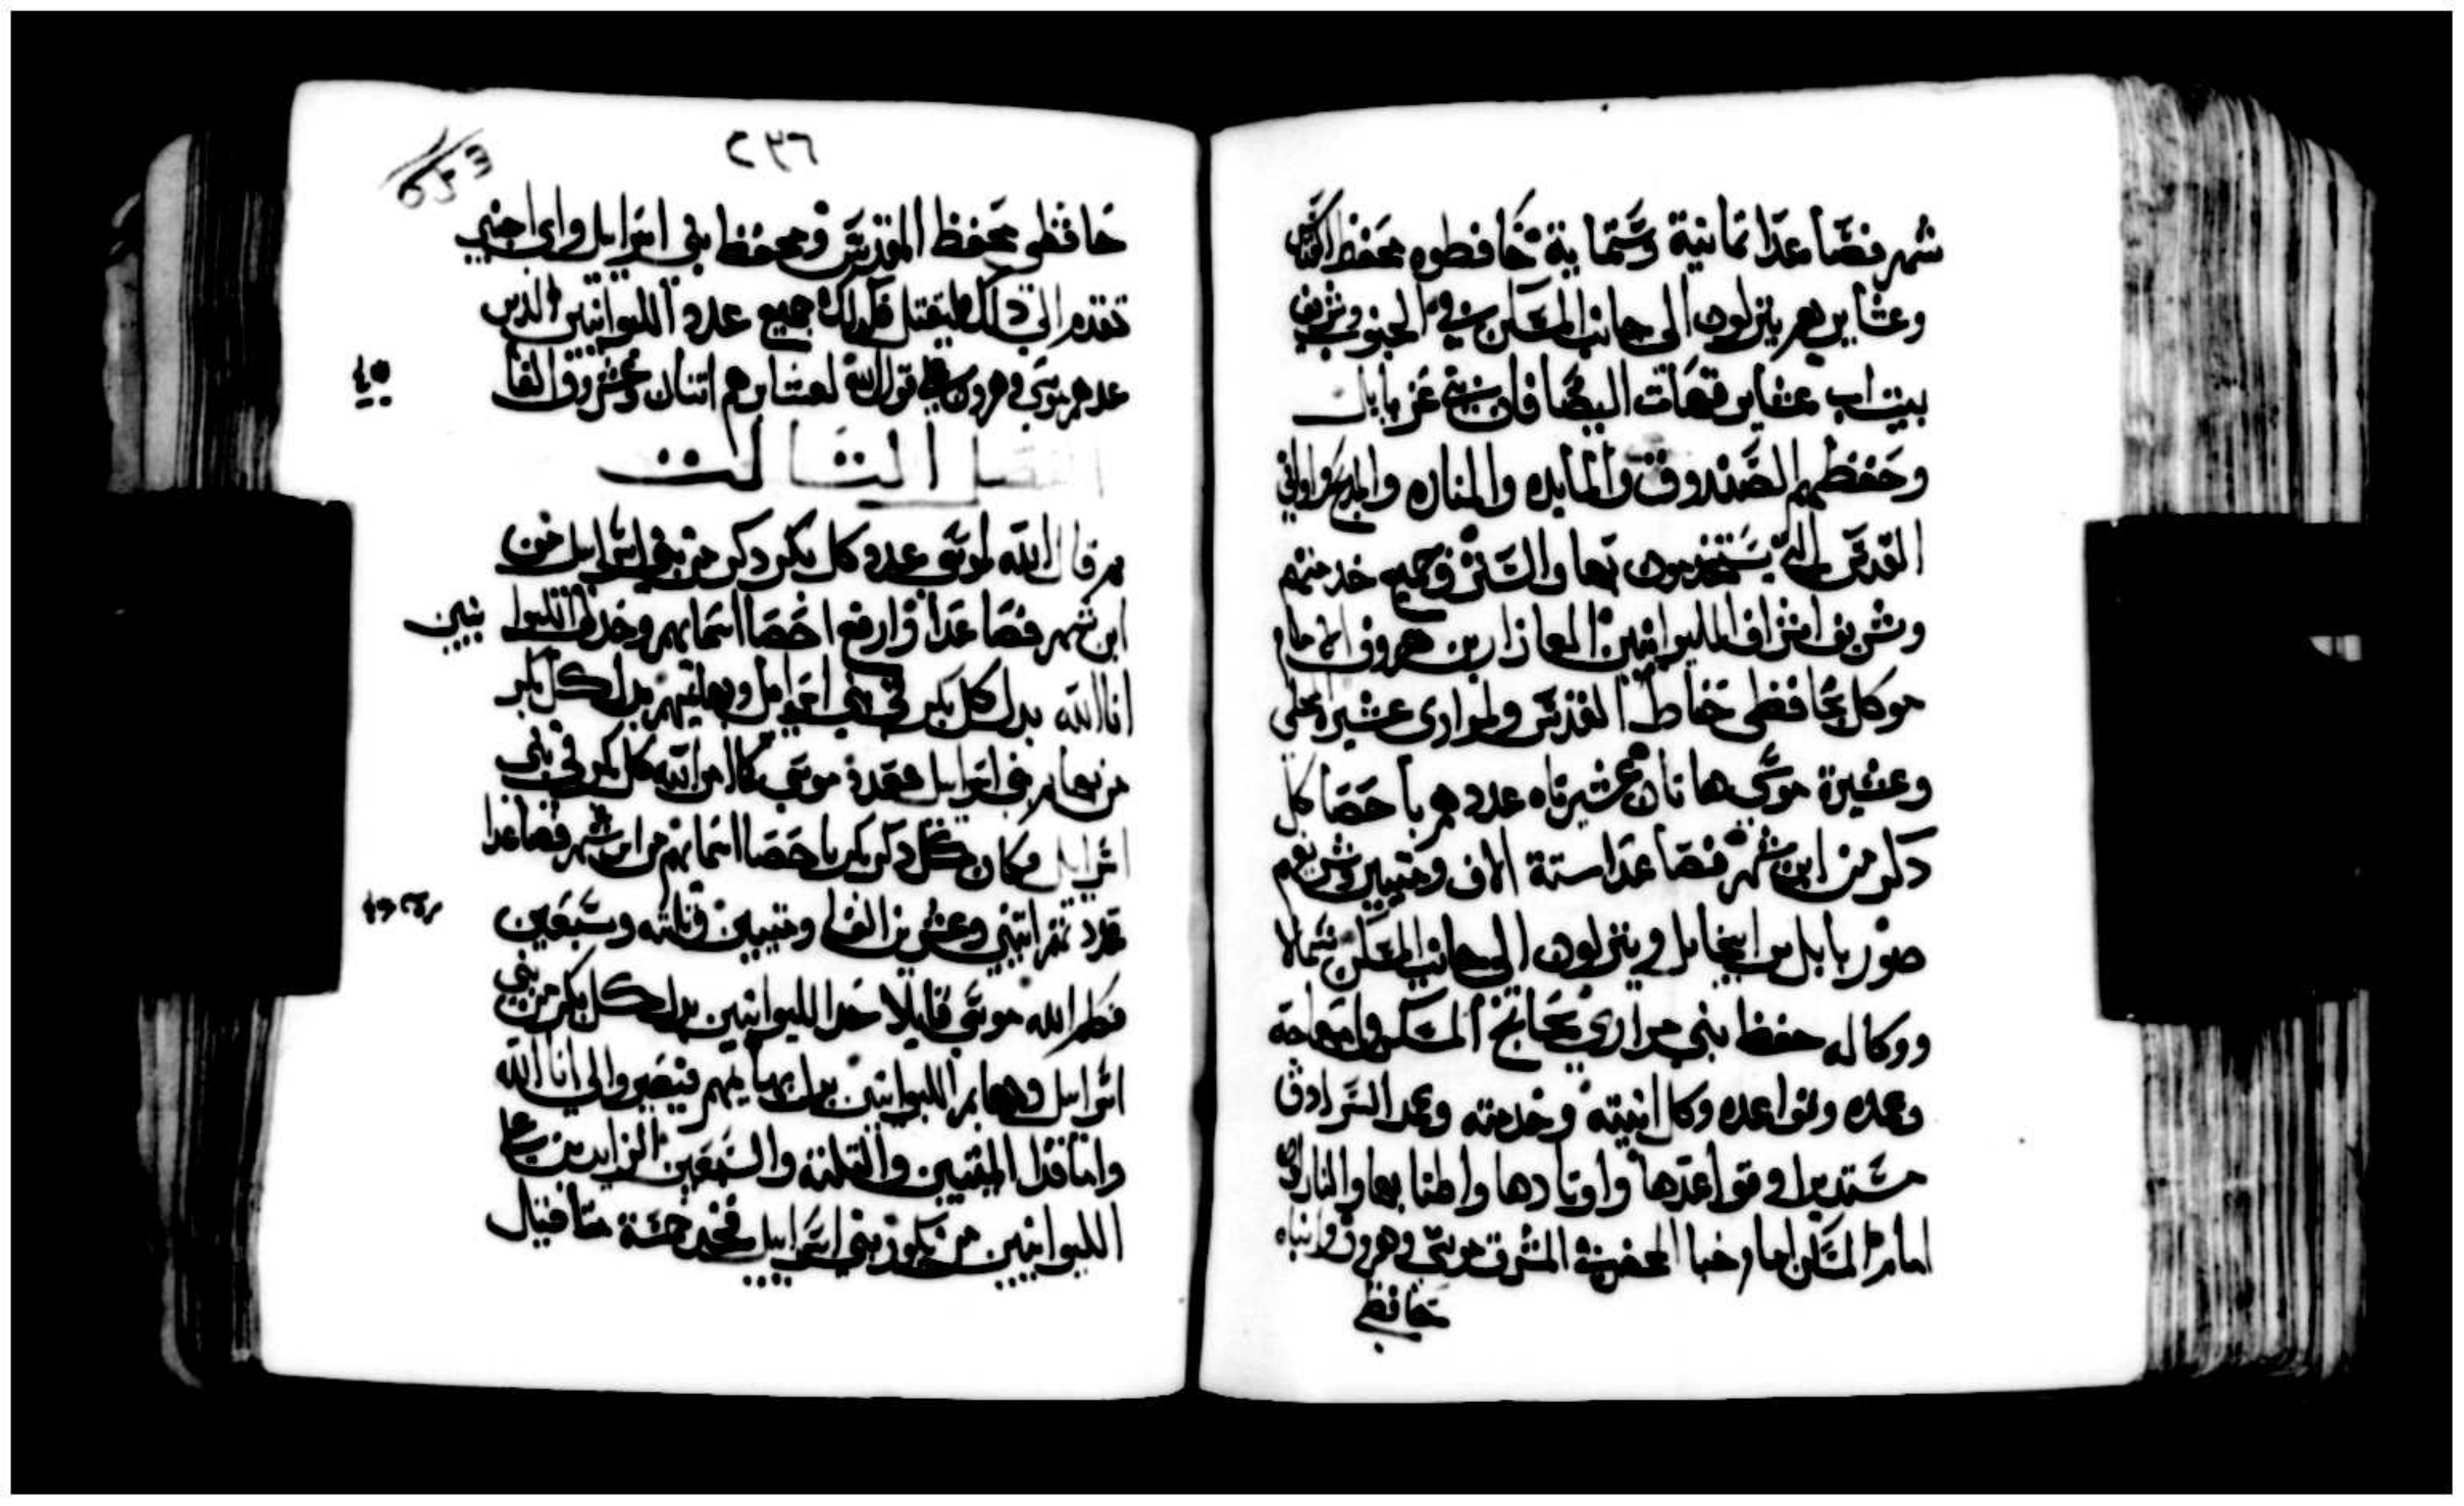 شهر فصاعدا ثمانية وستماية حافطوه محفظ القدس
وعشايرهم ينزلون الى جانب المسكن في الجنوب وشريف
بيت اب عشاير قهات اليصافان بن عزيايل
وحفظهم الصندوق والمايده والمناره والمدبح واواني
القدس التي يستخدمون بها والستر وجميع خدمتهم
وشريف اشراف الليوانيين العازار بن هرون الامام
موكل محافظى حفاظ القدس ولمرارى عشيرة محلى
وعشيرة موسي هاتان عشيرتاه عددهم باحصا كل
دكر من ابن شهر فصاعدا ستة الاف وميتيين وشريفهم
صور يايل بن ابيحايل وينزلون الى جانب المسكن شمالا
ووكاله حفظ بني مراري تحاتج المسكن وامتعاجة
وعمده وقواعده وكل انيته وخدمته وعمد السرادق
مستديرا وقواعدها واوتادها واطنابها والنازلون
امام المسكن امام خبا المحضر في المشرق موسي وهرون وابناه
حافظي
٢٣٦
حافظي محفظ المقدس ومحفظ بني اسرايل واي اجنبي
تقدم الى دلك فليقتل فدلك جميع عدد الليوانيين الدين
عدهم موسي وهرون على قول الله لعشايرهم اتنان وعشرون الفا
الفصل التالت
تم قال الله لموسي عدد كل بكر دكر من بني اسرايل من
ابن شهر فصاعدا وارفع احصا اسمايهم وخد لى الليوا نيين
انا الله بدل كل بكر في بني اسرايل وبهايمهم بدل كل بكر
من بهايم بني اسرايل فعدد موسي كما امر الله كل بكر في بني
اسرايل فكان كل دكر بكر باحصا اسمايهم من ابن شهر فصاعدا
عدد تم اتنين وعشرين الفا وميتيين وتلته وسبعين
فكلم الله موسي قايلا خد الليوانيين بدل كل بكر من بني
اسرايل وبهايم الليوانيين بدل بهايمهم فيصيروا لي انا الله
واما فدا الميتيين والتلته والسبعين الزايدين على
الليوانيين من بكور بني اسرايل فخد خمسة متاقيل